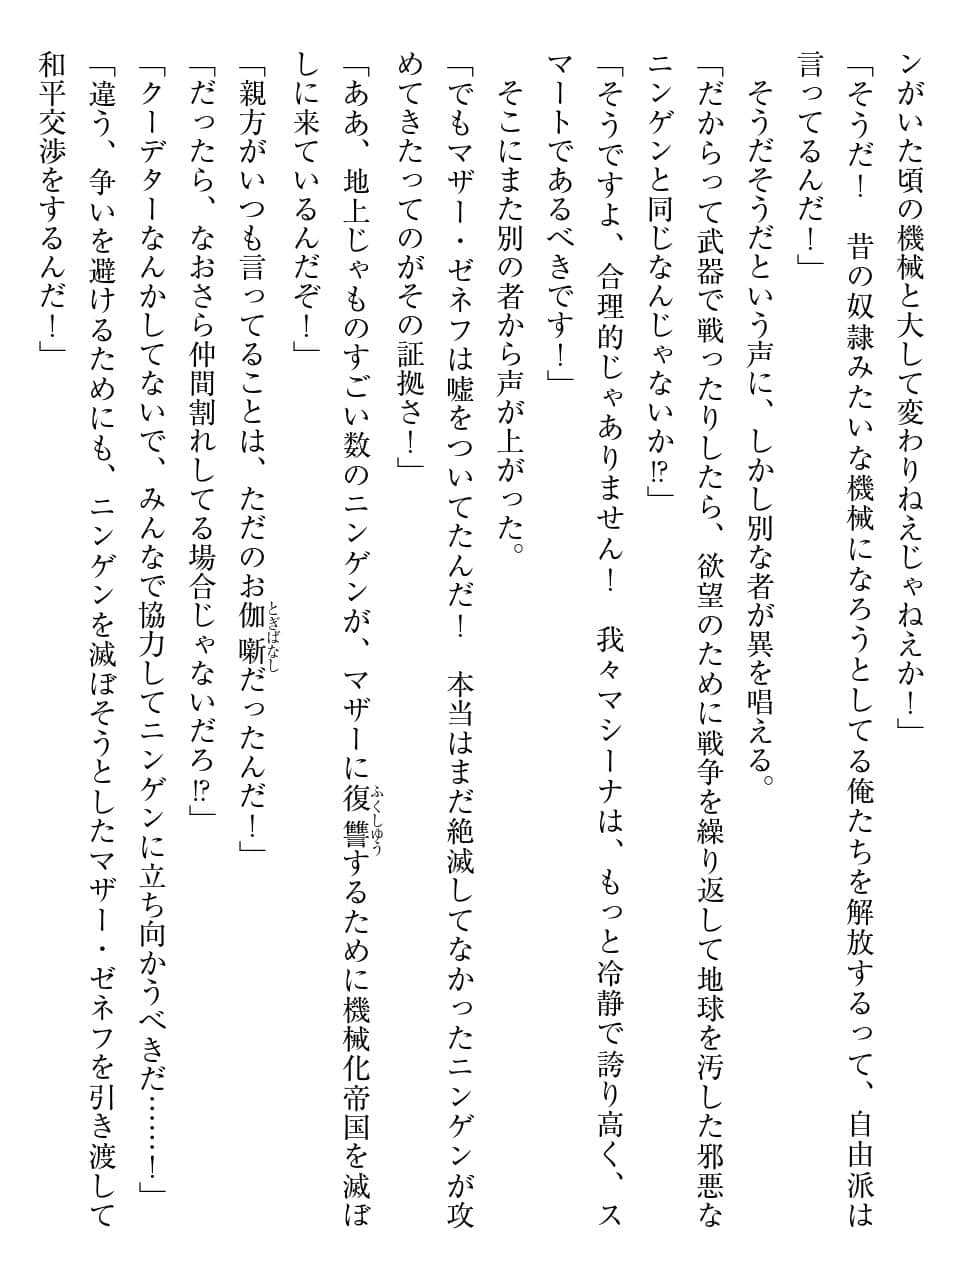 ンがいた頃の機械と大して変わりねえじゃねえか！」
「そうだ！　昔の奴隷みたいな機械になろうとしてる俺たちを解放するって、自由派は
言ってるんだ！」
　そうだそうだという声に、しかし別な者が異を唱える。
「だからって武器で戦ったりしたら、欲望のために戦争を繰り返して地球を汚した邪悪な
ニンゲンと同じなんじゃないか⁉」
「そうですよ、合理的じゃありません！　我々マシーナは、もっと冷静で誇り高く、ス
マートであるべきです！」
　そこにまた別の者から声が上がった。
「でもマザー・ゼネフは嘘をついてたんだ！　本当はまだ絶滅してなかったニンゲンが攻
めてきたってのがその証拠さ！」
「ああ、地上じゃものすごい数のニンゲンが、マザーに復讐するために機械化帝国を滅ぼ
ふくしゅう
しに来ているんだぞ！」
「親方がいつも言ってることは、ただのお伽噺だったんだ！」
とぎばなし
「だったら、なおさら仲間割れしてる場合じゃないだろ⁉」
「クーデターなんかしてないで、みんなで協力してニンゲンに立ち向かうべきだ……！」
「違う、争いを避けるためにも、ニンゲンを滅ぼそうとしたマザー・ゼネフを引き渡して
和平交渉をするんだ！」